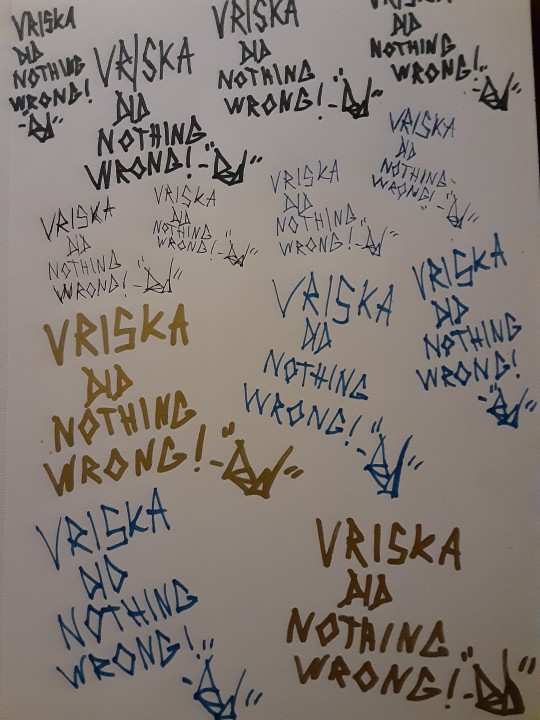 VRISKA
DID
NOTHING
WRONG!
VRISKA
DID
NOTHING
WRONG!
VRISKA
DID
NOTHING
WRONG!
DID
NOTHING
WRONG!
VRISKA
DID
NOTHING
WRONG!
VRISKA
DID
NOTHING
WRONG!
VRISKA
DID
NOTHING
WRONG!
VRISKA
DID
NOTHING
WRONG!
VRISKA
DID
NOTHING
WRONG!
VRISKA
DID
NOTHING
WRONG!
VRISKA
DID
NOTHING
WRONG!
VRISKA
DID
NOTHING
WRONG!
VRISKA
DID
NOTHING
WRONG!
VRISKA
DID
NOTHING
WRONG!